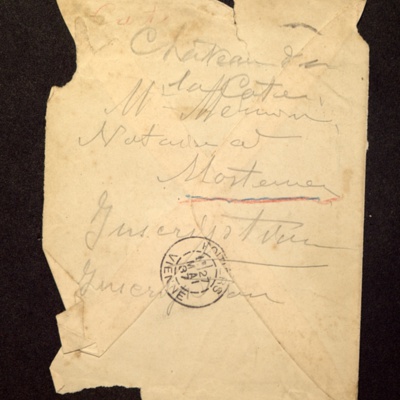 Château de
la Côte,
Mr
Notaire à
Mortemer
Inscription
Inscription
27
MAI
VIENNE